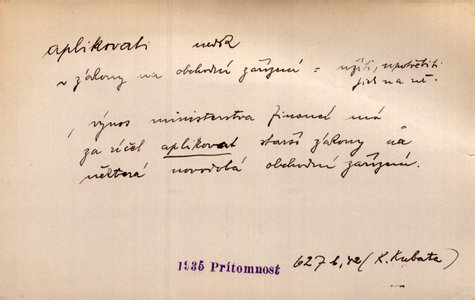 aplikovati nedok
~ zákony na obchodní zařízení = užíti, upotřebiti
jich na ně.
výnos ministerstva financí má
za účel aplikovat starší zákony na
některá novodobá obchodní zařízení.
1935 Přítomnost 627 (K. Kubata)